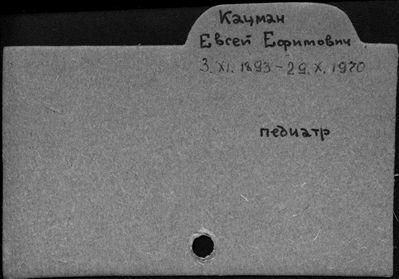 Кацман
Евсей Ефимович
3.XI.1893-29.X.1970
педиатр